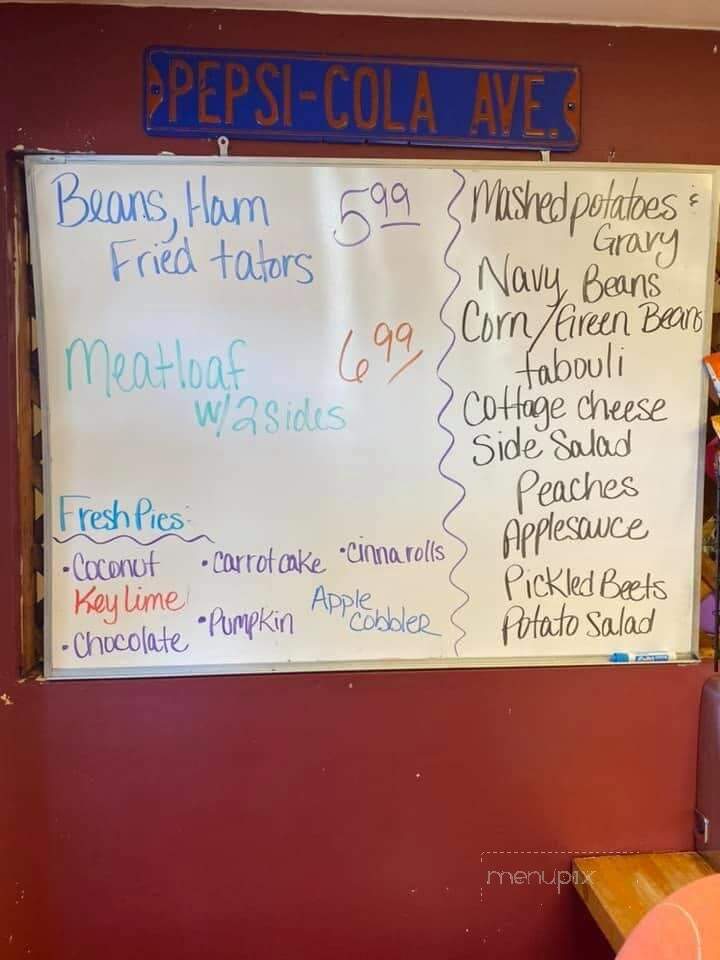 PEPSI-COLA AVE.
Beans, Ham 5.99
Fried tators
Meatloaf 6.99
w/2 Sides
Fresh Pies:
• Coconut
Key lime
• Chocolate
• Carrot cake
• Pumpkin
• Cinna rolls
Apple
Cobbler
Mashed potatoes &
Gravy
Navy Beans
Corn/Green Beans
tabouli
Cottage cheese
Side Salad
Peaches
Applesauce
Pickled Beets
Potato Salad
menupix